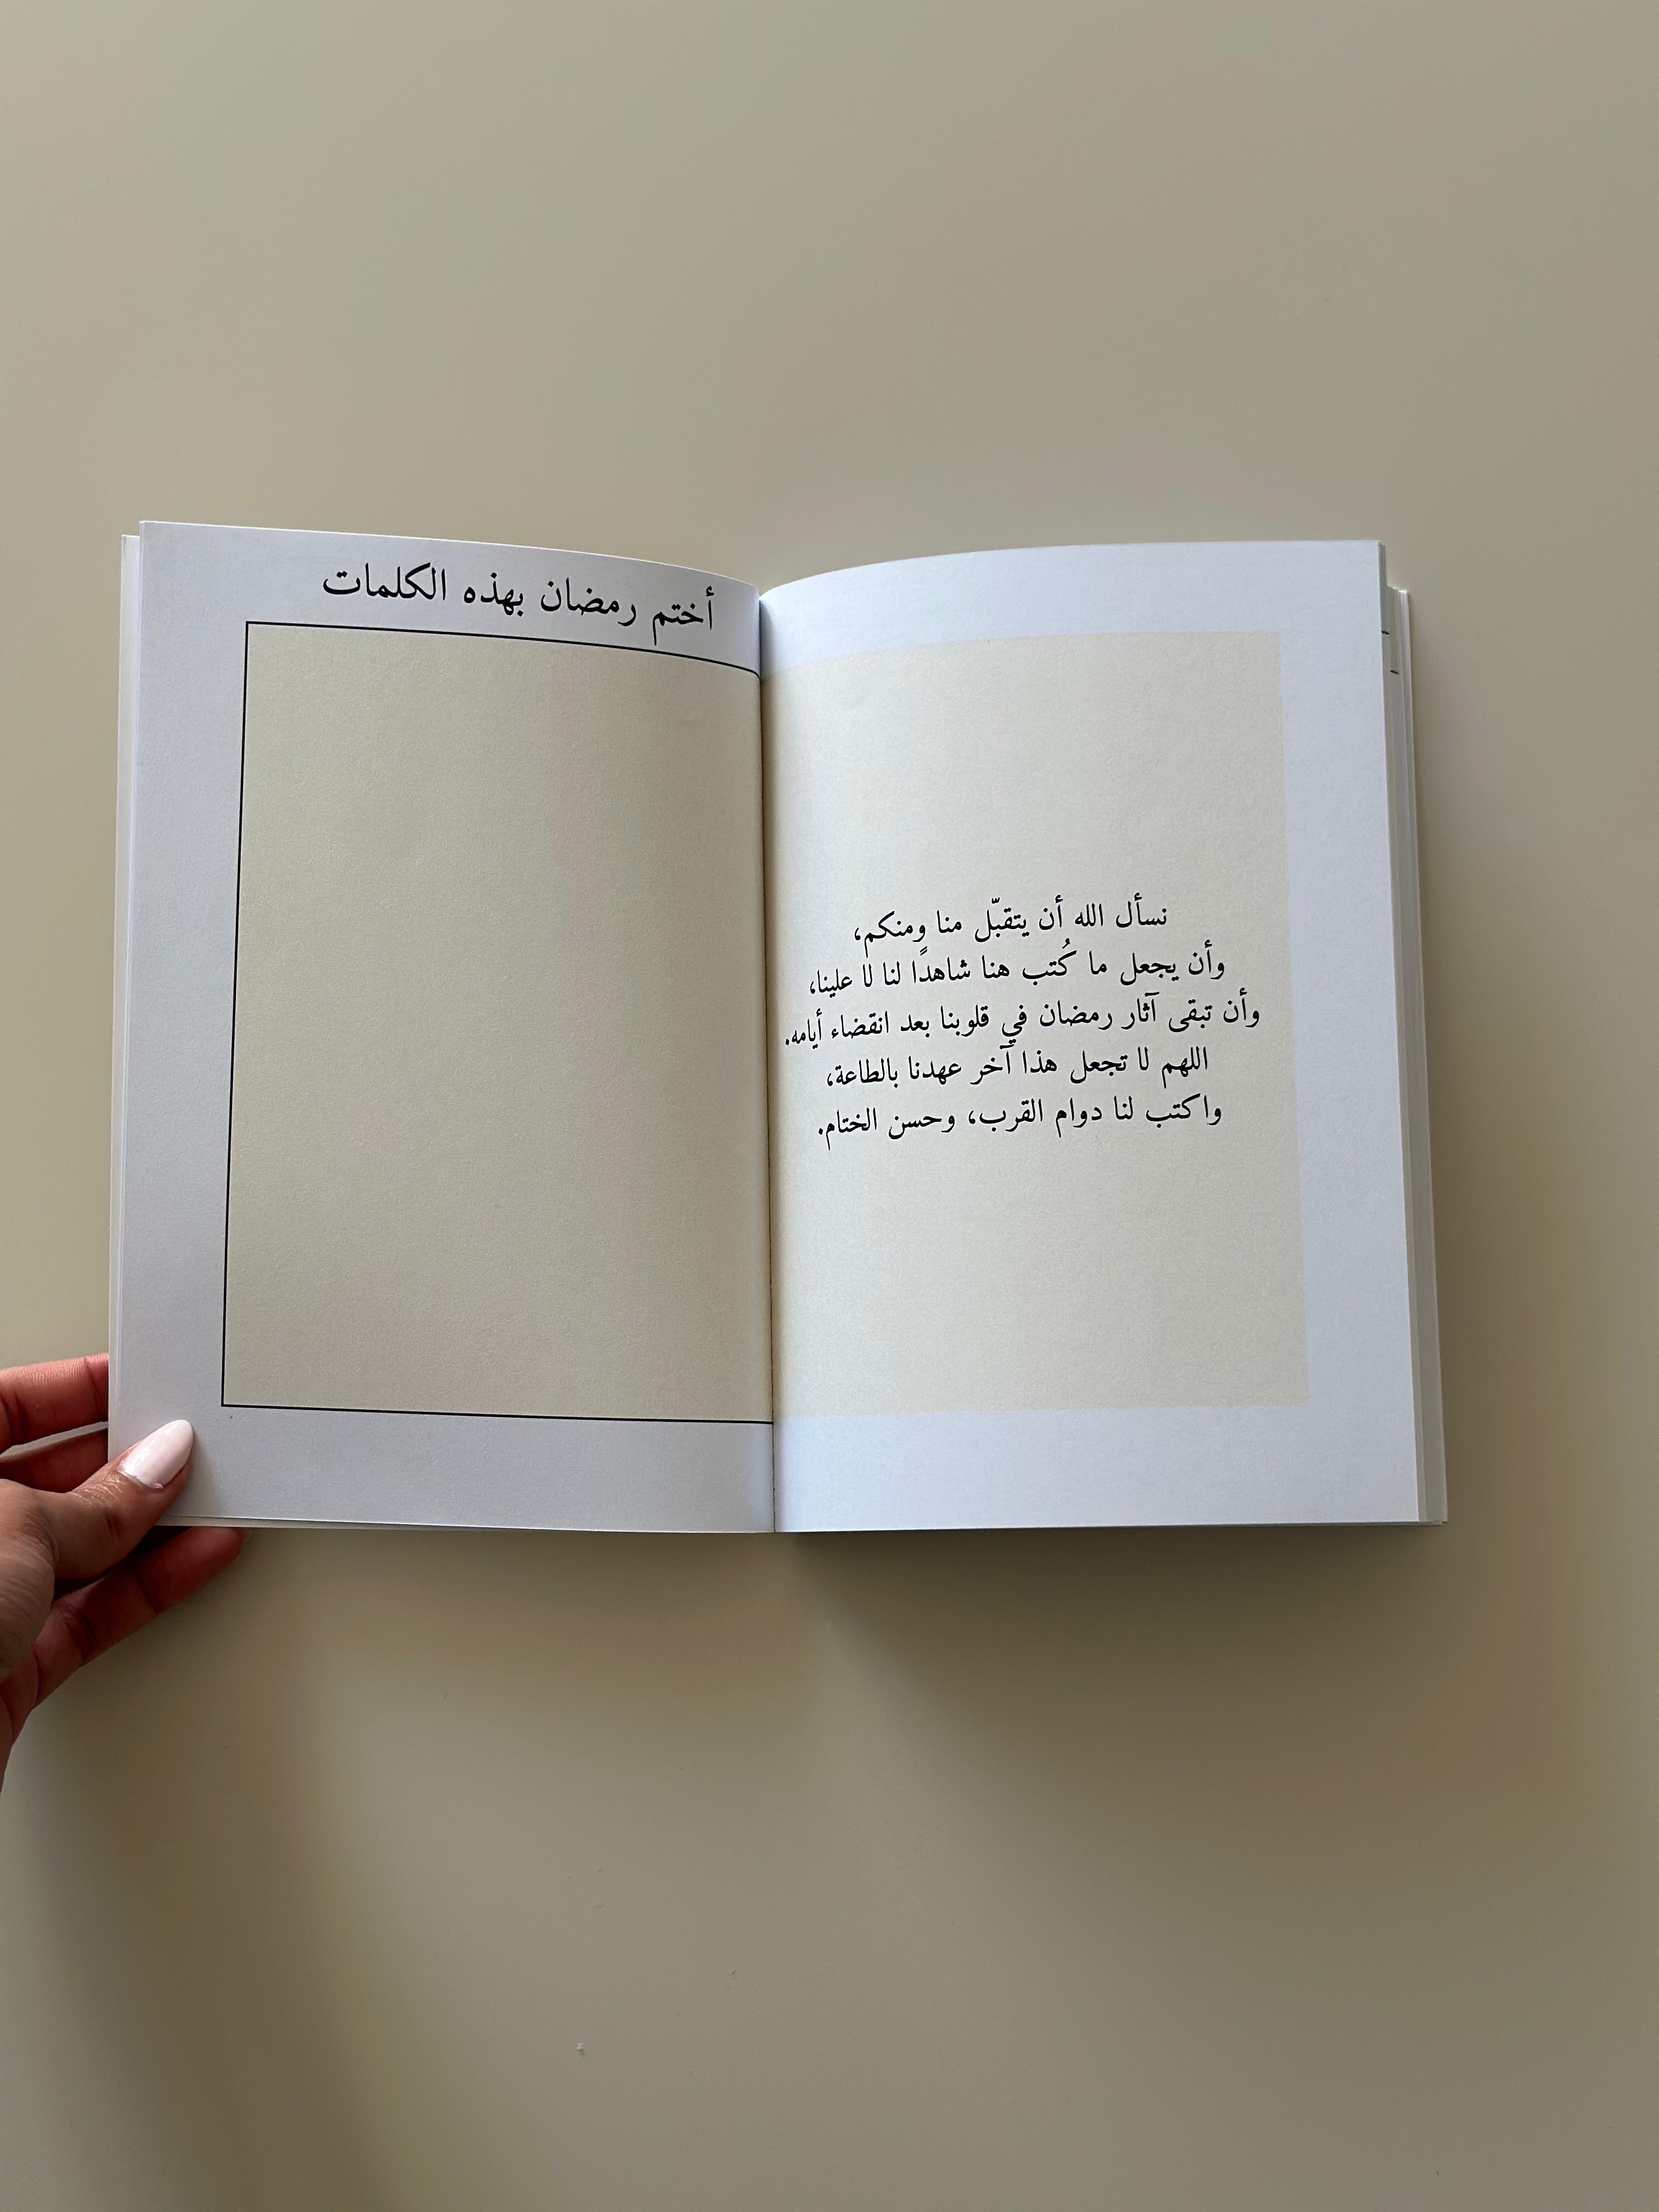 نسأل الله أن يتقبّل منا ومنكم،
وأن يجعل ما كُتب هنا شاهدًا لنا لا علينا،
وأن تبقى آثار رمضان في قلوبنا بعد انقضاء أيامه.
اللهم لا تجعل هذا آخر عهدنا بالطاعة،
واكتب لنا دوام القرب، وحسن الختام.
أختم رمضان بهذه الكلمات